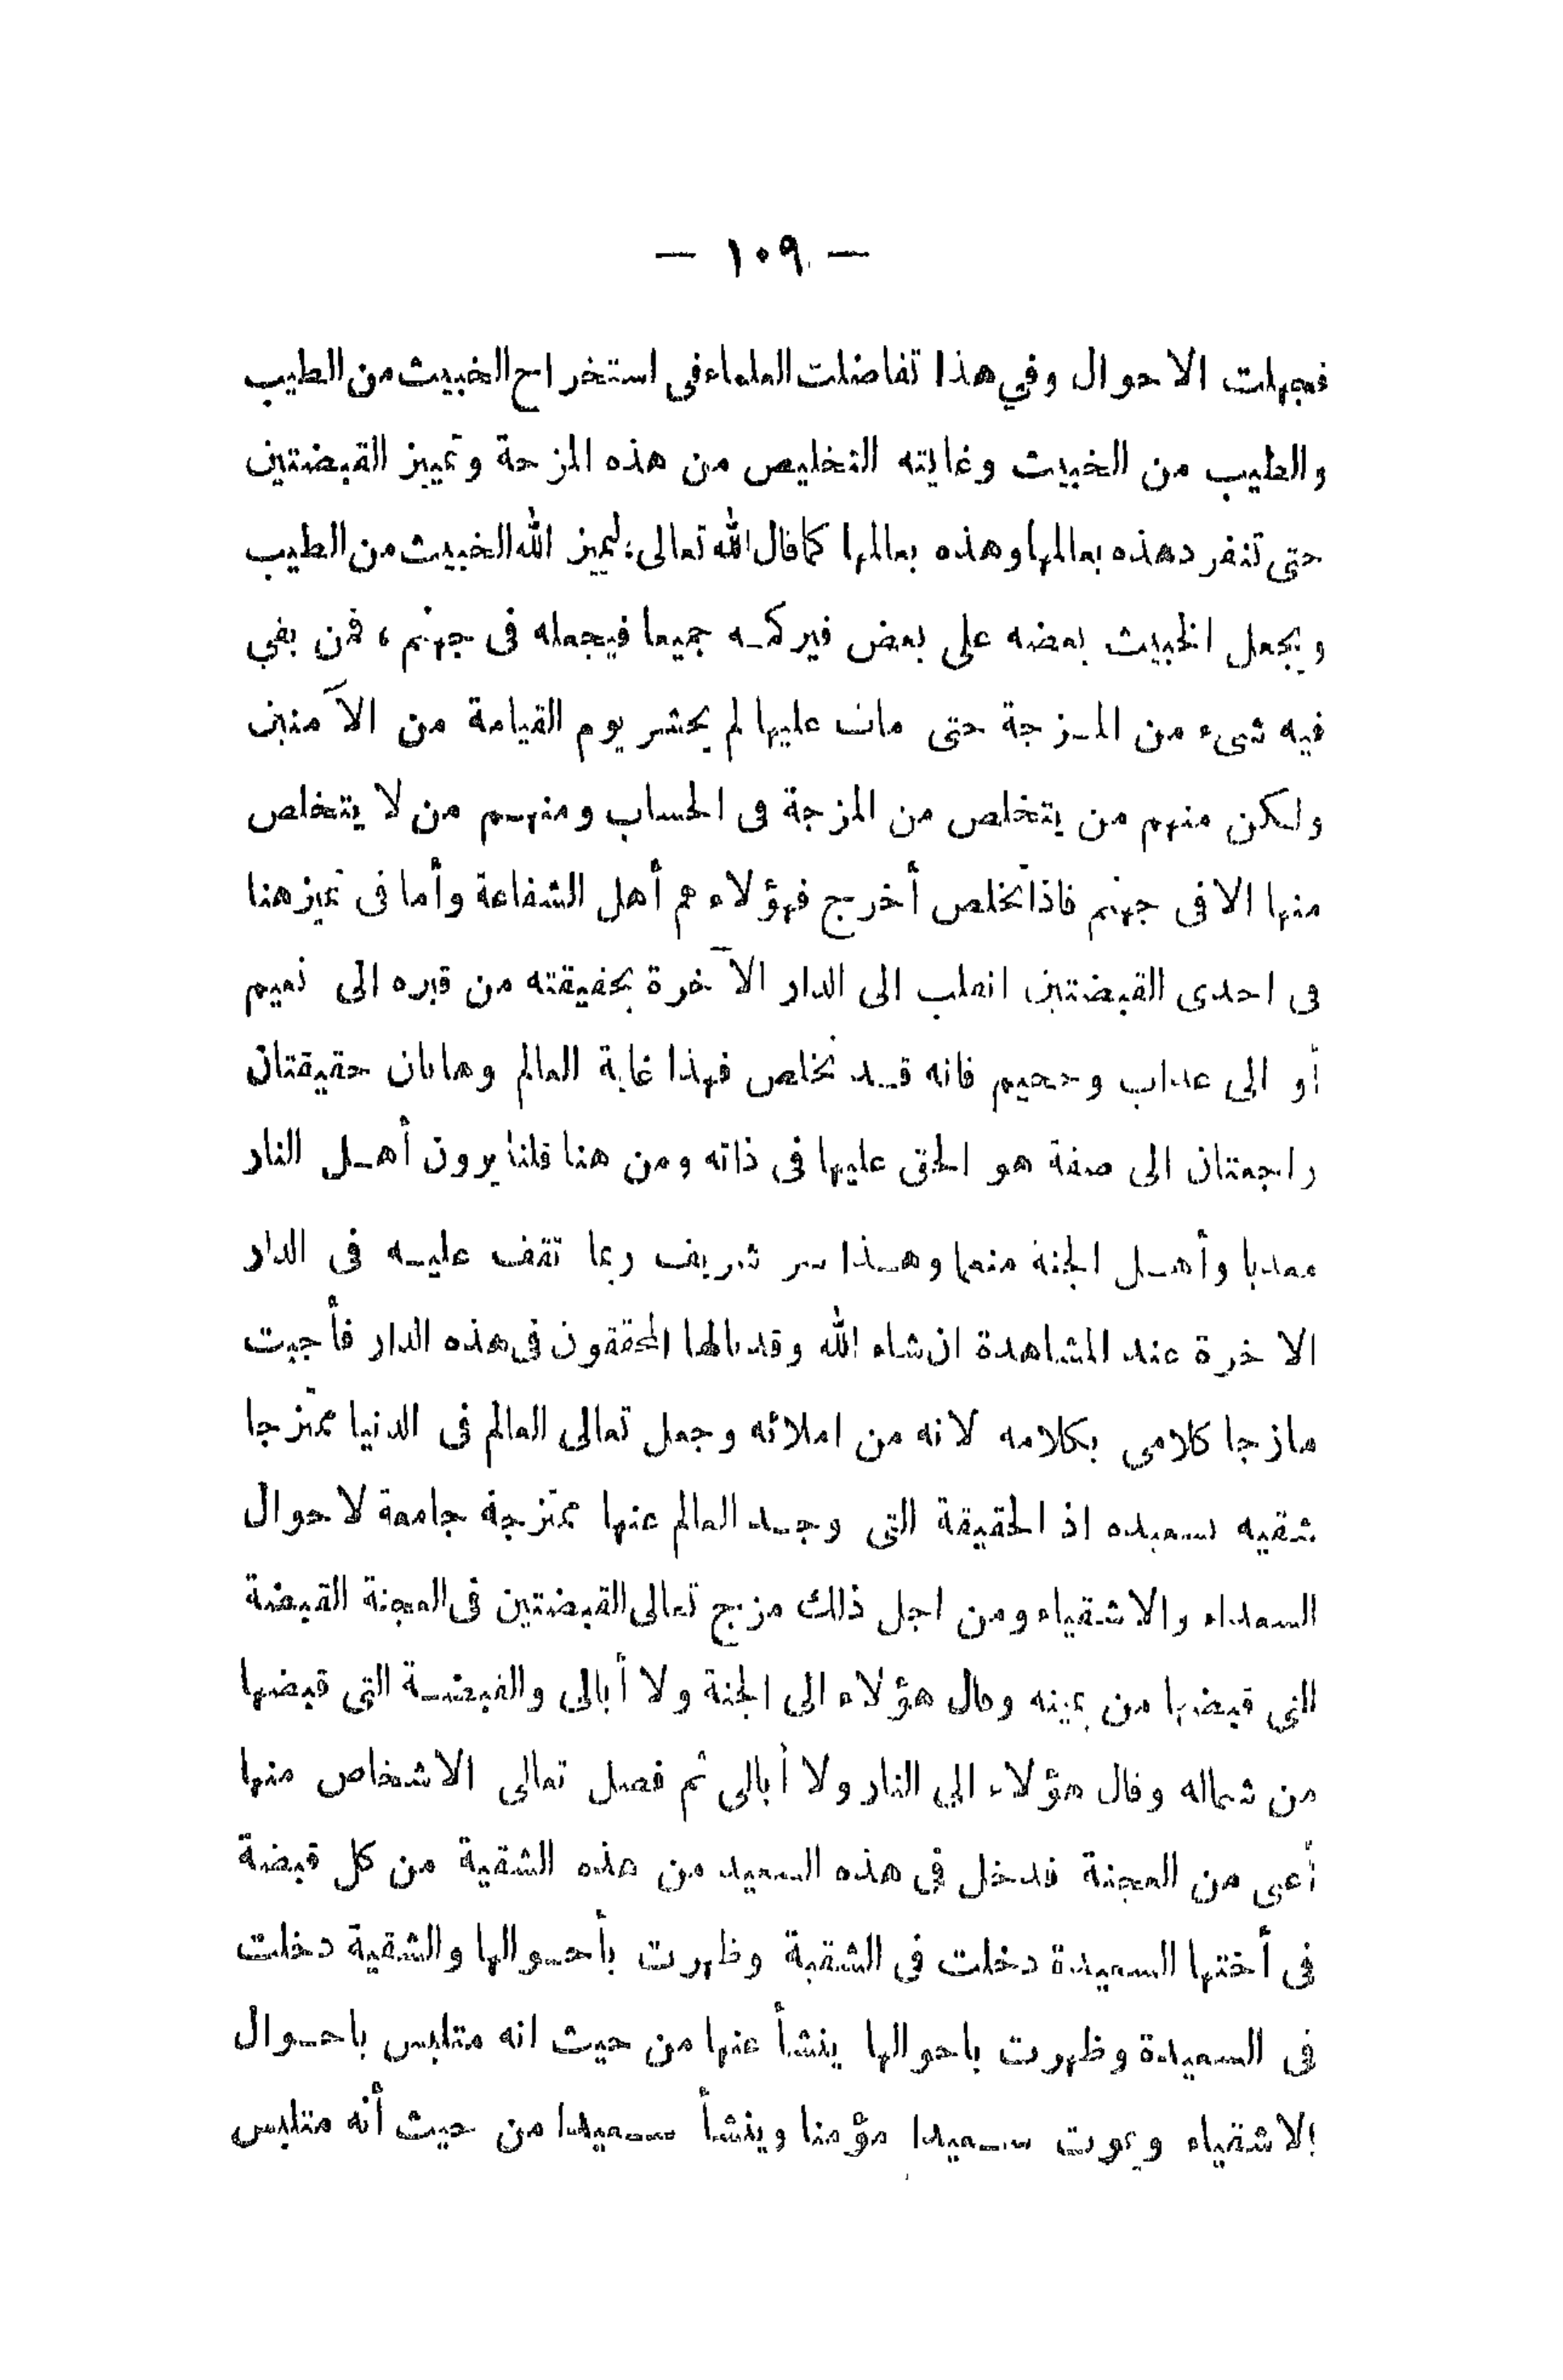 — ١٠٩ —
فجهلت الاحوال وفي هذا تفاضلت العلماء فى استخراج الخبيث من الطيب
والطيب من الخبيث وغايته التخليص من هذه المزجة وتمييز القبضتين
حتى تنفرد هذه بعالمها وهذه بعالمها كما قال الله تعالى: ليميز الله الخبيث من الطيب
ويجعل الخبيث بعضه على بعض فيركمه جميعا فيجعله فى جهنم، فمن بقي
فيه شىء من المزجة حتى مات عليها لم يحشر يوم القيامة من الآمنين
ولكن منهم من يتخلص من المزجة فى الحساب ومنهم من لا يتخلص
منها الا فى جهنم فاذا تخلص أخرج فهؤلاء هم أهل الشفاعة وأما فى تميز هنا
فى احدى القبضتين انقلب الى الدار الآخرة بحقيقته من قبره الى نعيم
أو الى عذاب وجحيم فانه قد تخلص فهذا غاية العالم وهاتان حقيقتان
راجعتان الى صفة هو الحق عليها فى ذاته ومن هنا قلنا يرون أهل النار
معذبا وأهل الجنة منعما وهذا سر شريف ربما تقف عليه فى الدار
الاخرة عند المشاهدة ان شاء الله وقد نالها المحققون فى هذه الدار فأجبت
مازجا كلامى بكلامه لانه من املائه وجعل تعالى العالم فى الدنيا ممتزجا
شقيه بسعيده اذ الحقيقة التى وجد العالم عنها ممتزجة جامعة لاحوال
السعداء والاشقياء ومن اجل ذلك مزج تعالى القبضتين فى العجنة القبضة
التى قبضها من يمينه وقال هؤلاء الى الجنة ولا أبالى والقبضة التى قبضها
من شماله وقال هؤلاء الي النار ولا أبالى ثم فصل تعالى الاشخاص منها
أعى من العجنة فدخل فى هذه السعيد من هذه الشقية من كل قبضة
فى أختها السعيدة دخلت فى الشقية وظهرت بأحوالها والشقية دخلت
فى السعيدة وظهرت باحوالها ينشأ عنها من حيث انه متلبس باحوال
الاشقياء ويموت سعيدا مؤمنا وينشأ سعيدا من حيث أنه متلبس